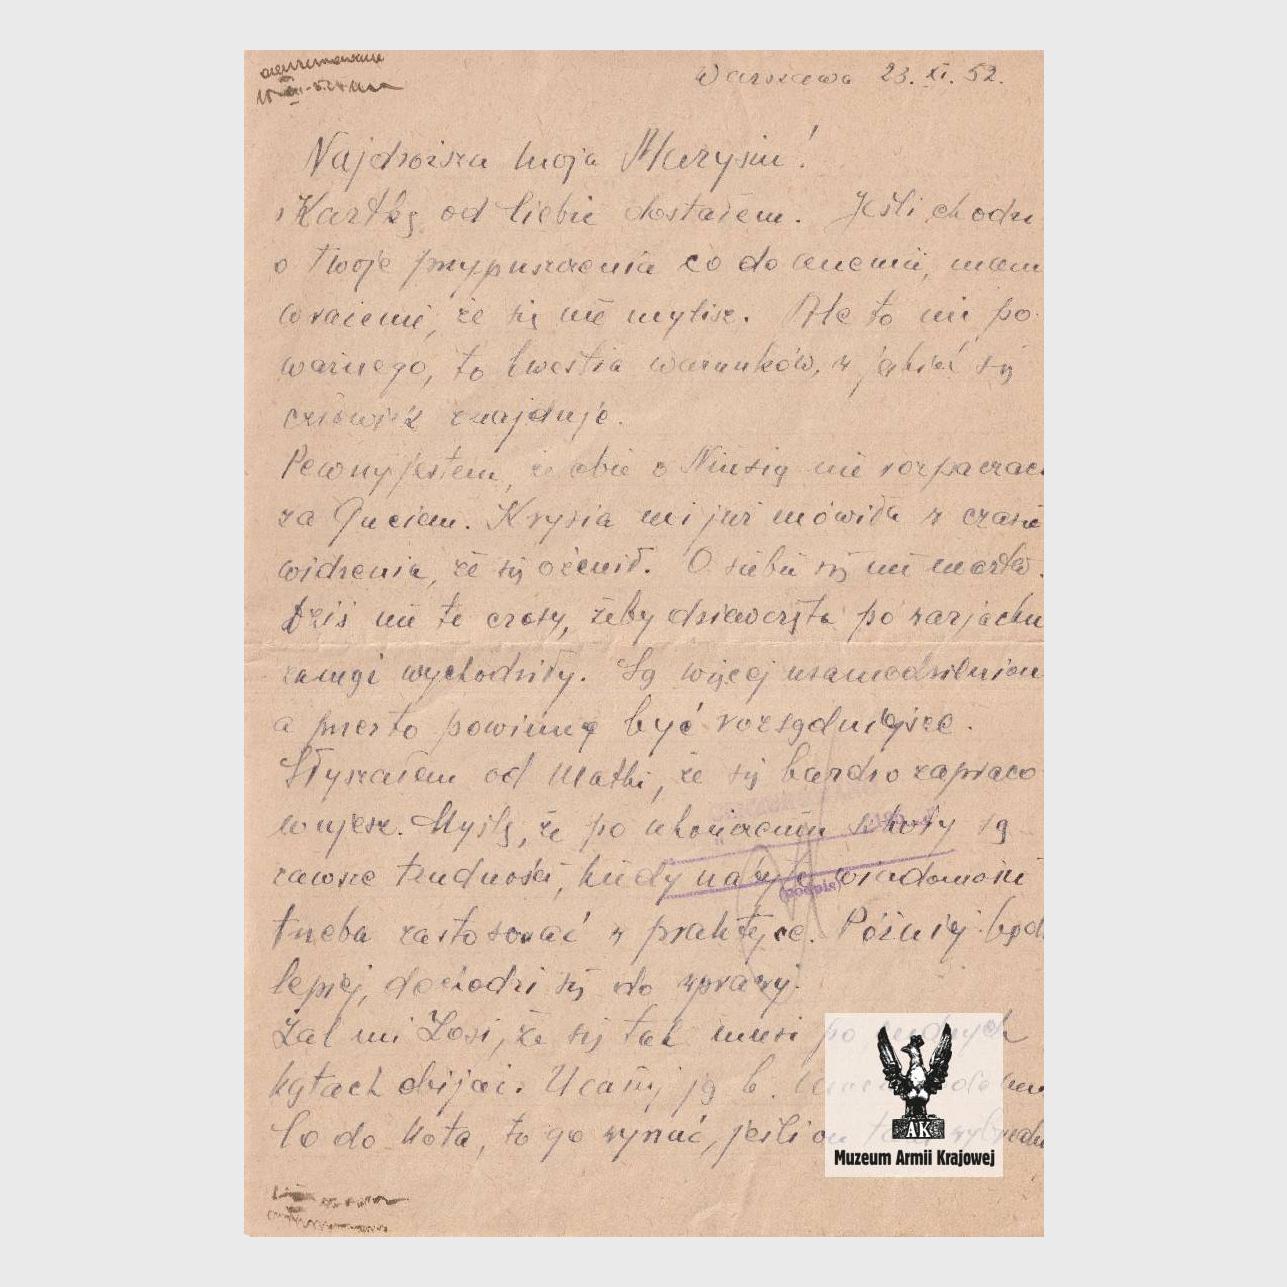 Warszawa 23. XI. 52.
Najdroższa moja Marysiu!
Kartkę od Ciebie dostałem. Jeśli chodzi
o twoje przypuszczenia co do anemii, mam
wrażenie, że się nie mylisz. Ale to nic po-
ważnego, to kwestia warunków, w jakich się
człowiek znajduje.
Pewny jestem, że obie z Niusią nie rozpaczac
za Guciem. Krysia mi już mówiła w czasie
widzenia, że się ożenił. O siebie się nie martw.
Dziś nie te czasy, żeby dziewczęta po
wychodziły. Są więcej usamodzielnion
a przez to powinny być rozsądniejsze.
Słyszałem od Matki, że się bardzo zapraco
wujesz. Myślę, że po ukończeniu szkoły są
zawsze trudności, kiedy nabyte wiadomości
trzeba zastosować w praktyce. Później będ
lepiej, dochodzi się do wprawy.
Żal mi Zosi, że się tak musi po
kątach obijać. Ucałuj ją b.
Co do Kota, to go wyrzuć, jeśli on
(podpis)
AK
Muzeum Armii Krajowej